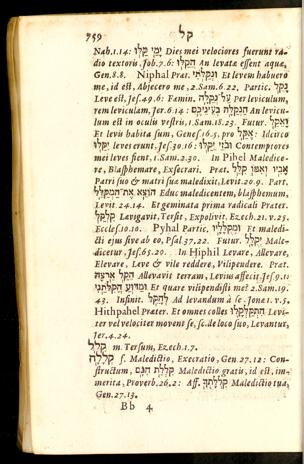 759 קל
Nah.1.14: יָמַי קַלּוּ Dies mei velociores fuerunt ra-
dio textoris, Job.7.6: הֲקַלּוּ An levata essent aquæ,
Gen.8.8. Niphal Præt. וּנְקַלֹּתִי Et levem habuero
me, id est, Abjecero me, 2.Sam.6.22. Partic. נָקֵל
Leve est, Jes.49.6: Fœmin. עַל נְקַלָּה Per leviculum,
rem leviculam, Jer.6.14: הַנְקַלָּה בְּעֵינֵיכֶם An levicu-
lum est in oculis vestris, 1.Sam.18.23. Futur. וָאֵקַל
Et levis habita sum, Genes.16.5, pro אֶקַּל: Idcirco
יִקַּלּוּ leves erunt, Jes.30.16: וּבֹזַי יֵקָלּוּ Contemptores
mei leves fient, 1.Sam.2.30. In Pihel Maledice-
re, Blasphemare, Exsecrari. Præt. אָבִיו וְאִמּוֹ קִלֵּל
Patri suo & matri suæ maledixit, Levit.20.9. Part.
הוֹצֵא אֶת־הַמְקַלֵּל Educ maledicentem, blasphemum,
Levit 24.14. Et geminata prima radicali Præter.
קִלְקַל Lævigavit, Tersit, Expolivit, Ezech.21.v.25.
Eccles.10.10. Pyhal Partic. וּמְקֻלָּלָיו Et maledi-
cti ejus sive ab eo, Psal.37.22. Futur. יְקֻלָּל Male-
dicetur, Jes.65.20. In Hiphil Levare, Allevare,
Elevare, Leve & vile reddere, Vilipendere. Præt.
הֵקַל אַרְצָה Allevavit terram, Levius affecit, Jes.9.1:
וּמַדּוּעַ הֲקִלֹּתַנִי Et quare vilipendisti me? 2.Sam.19.
43. Infinit. לְהָקֵל Ad levandum à se, Jone 1.v.5.
Hithpahel Præter. הִתְקַלְקָלוּ Et omnes colles levi-
ter vel velociter movent se, sc. de loco suo, Levantur,
Jer.4.24.
קָלָל m. Tersum, Ezech.1.7.
קְלָלָה f. Maledictio, Execratio, Gen.27.12: Con-
structum, קִלְלַת חִנָּם Maledictio gratis, id est, im-
merita, Proverb.26.2: Aff. קִלְלָתְךָ Maledictio tua,
Gen.27.13.
Bb 4